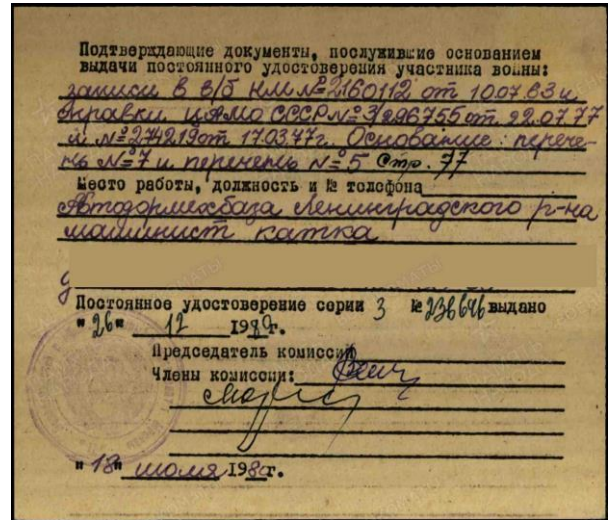 Подтверждающие документы, послужившие основанием
выдачи постоянного удостоверения участника войны:
записи в в/б НМ № 2160112 от 10.07.63 и
справки ЦАМО СССР № 3/296755 от 22.07.77
и № 274219 от 17.03.77г. Основание: перече-
нь № 7 и перечень № 5 Стр. 77
Место работы, должность и № телефона
Автодормехбаза Ленинградского р-на
машинист катка
Постоянное удостоверение серии 3 № 236646 выдано
"26" 12 1980г.
Председатель комиссии
Члены комиссии:
"18" июля 1980г.